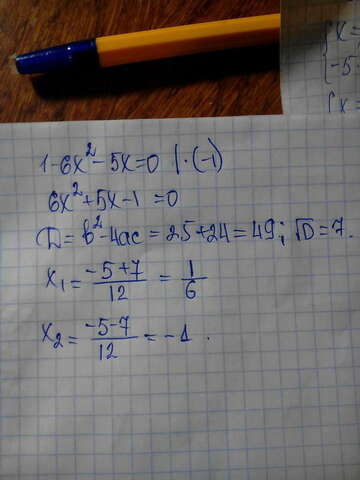 {x=
-5-
{x
1-6x²-5x=0 |·(-1)
6x²+5x-1=0
D=b²-4ac=25+24=49; √D=7.
x₁=(-5+7)/12=1/6
x₂=(-5-7)/12=-1.